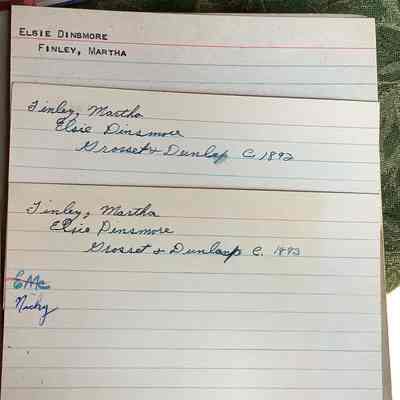 ELSIE DINSMORE
FINLEY, MARTHA
Finley, Martha
Elsie Dinsmore
Grosset & Dunlap C 1893
Finley, Martha
Elsie Dinsmore
Grosset & Dunlaup C. 1893
EMc
Nicky